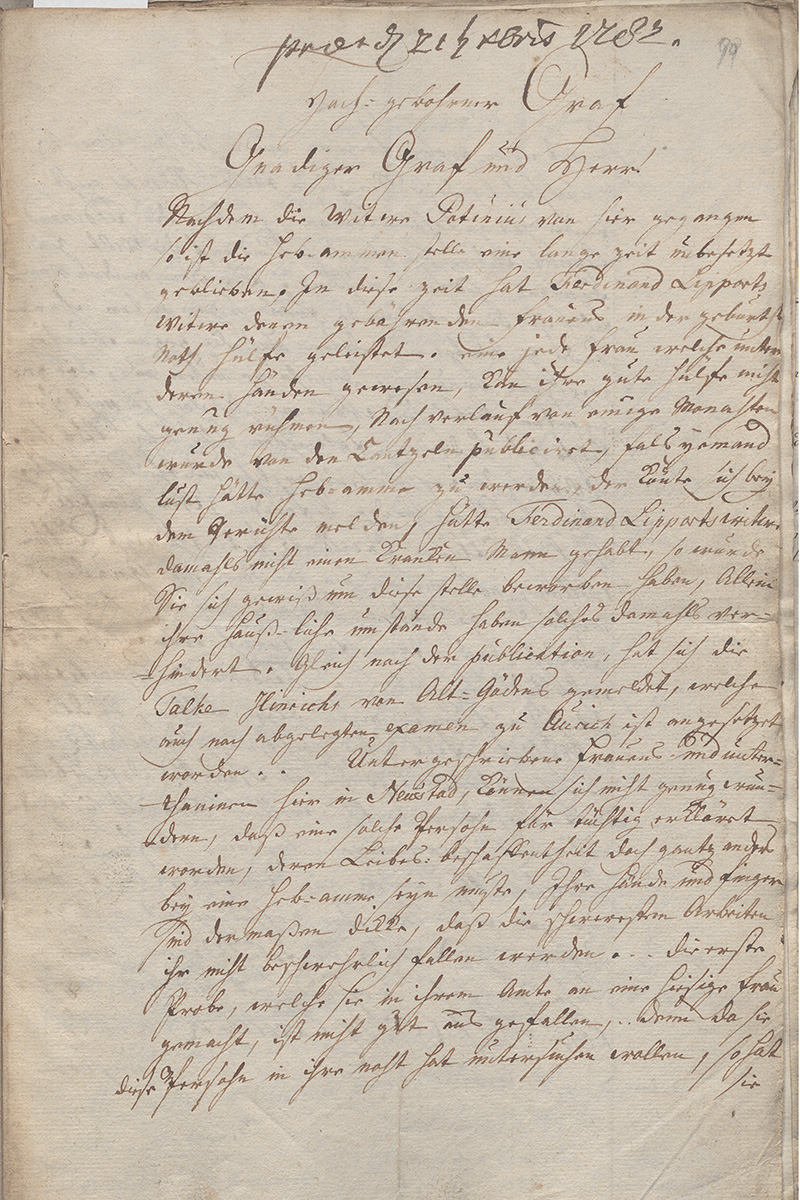 praes. d 21 Xbris 1782.
99
Hoch-gebohrner Graf
Gnädiger Graf und Herr!
Nachdem die Witwe Potinius von hier gegangen
so ist die Heb-ammen stelle eine lange zeit unbesetzt
geblieben. In diese zeit hat Ferdinand Lipperts
Witwe denen gebährenden Frauens in der geburths
Noth hülfe geleistet. eine jede Frau welche unter
deren Händen gewesen, kan ihre gute hülfe nicht
genug rühmen, Nach verlauf von einige Monahten
wurde von den Cantzeln publiciret, fals yemand
lust hätte Heb-amme zu werden der könte sich bey
dem Gerichte melden, hätte Ferdinand Lipperts witwe
damahls nicht einen Kranken Mann gehabt, so würde
Sie sich gewiß um diese stelle beworben haben, Allein
ihre Häuß-liche umstände haben solches damahls ver=
hindert. Gleich nach der publication, hat sich die
Talke Hinrichs von Alt=Gödens gemeldet, welche
auch nach abgelegten examen zu Aurich ist angesetzet
worden.. Untergeschriebene Frauens und unter=
thaninen hier in Neustad, können sich nicht genug wun=
dern, daß eine solche Persohn für tüchtig erkläret
worden, deren Leibes-beschaffenheit doch gantz anders
bey eine Heb-amme seyn müste, Ihre Hände und finger
sind dermaßen dicke, daß die schweresten Arbeiten
ihr nicht beschwehrlich fallen werden... die erste
Probe, welche sie in ihrem Amte an eine hiesige Frau
gemacht, ist nicht gut aus gefallen,.. denn da sie
diese Persohn in ihre noht hat untersuchen wollen, so hat
sie